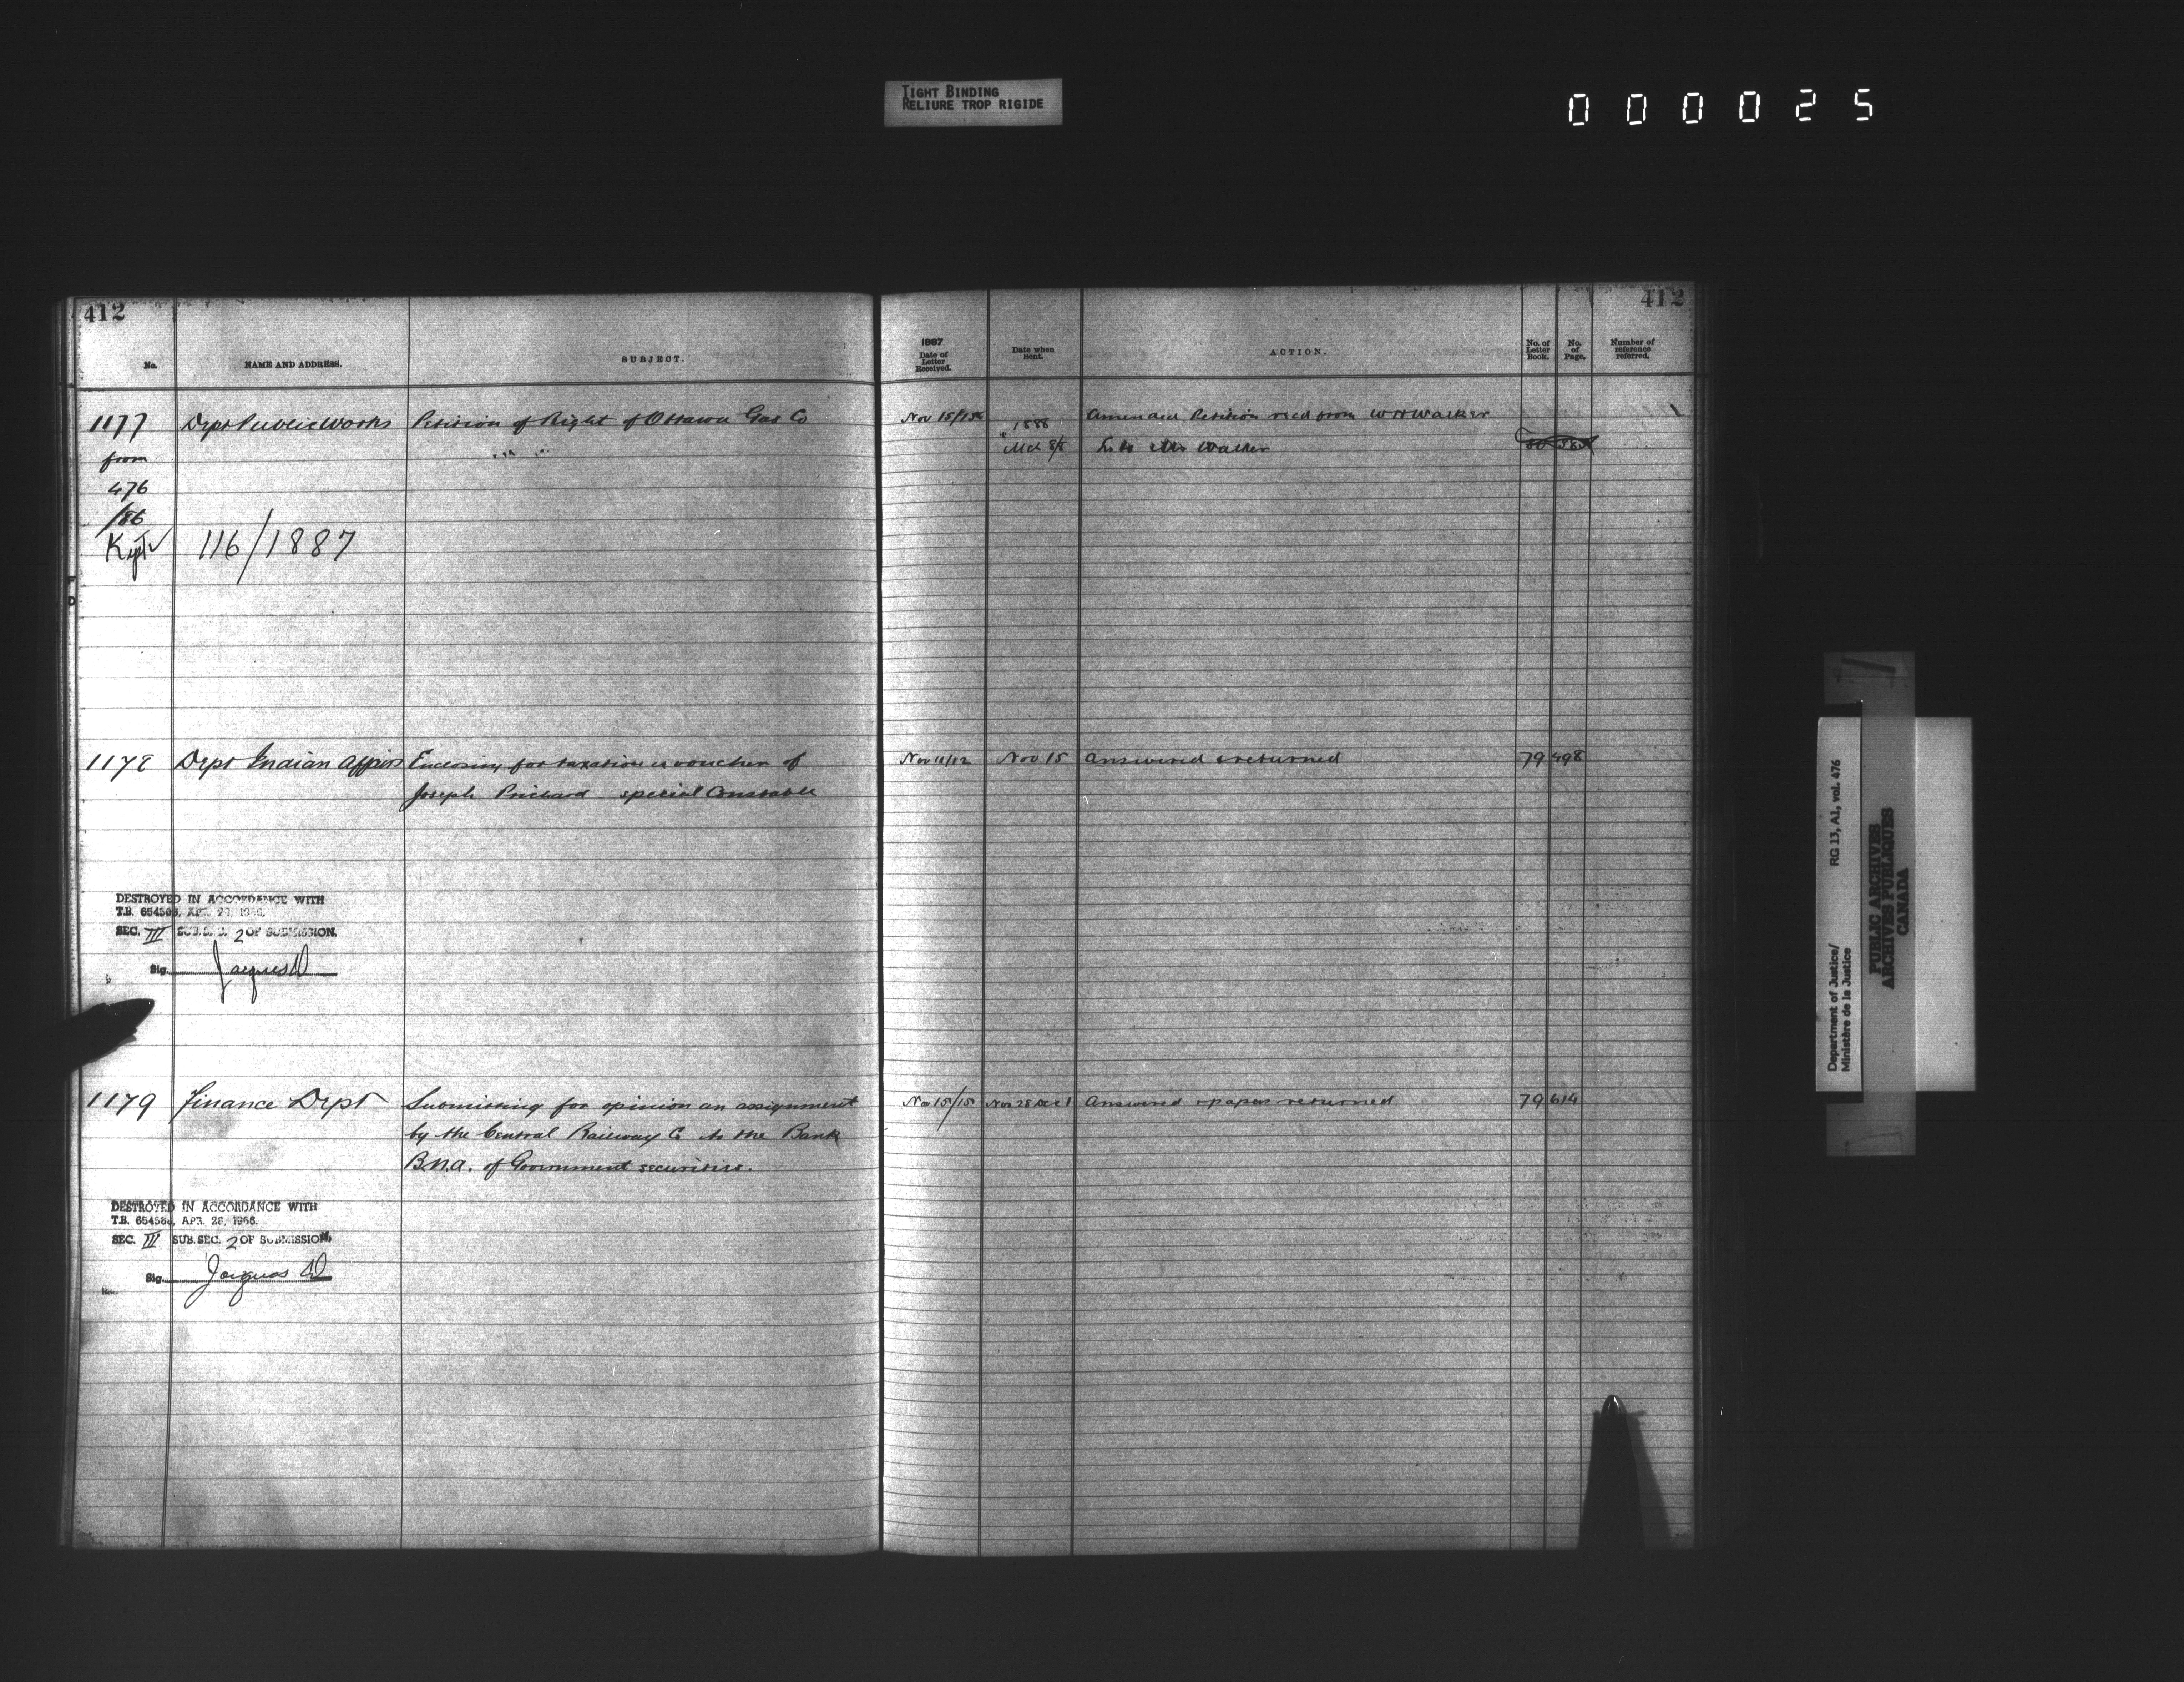 TIGHT BINDING
RELIURE TROP RIGIDE
000025
412
No.
NAME AND ADDRESS.
SUBJECT.
1887
Date of
Letter
Received.
Date when
Sent.
ACTION.
No. of
Letter
Book.
No.
of
Page.
Number of
reference
referred.
412
1177 Dept Public Works Petition of Right of Ottawa Gas Co Nov 15/15 Amended Petition recd from WH Walker
from 1888
Mch 8/8 L to Mr Walker
476
/86
Kept 116/1887
1178 Dept Indian Affairs Enclosing for taxation a voucher of Nov 11/12 Nov 15 Answered & returned 79 498
Joseph Prichard special Constable
DESTROYED IN ACCORDANCE WITH
T.B.
SEC. III SUB. SEC. 2 OF SUBMISSION.
Sig. Jacques
1179 Finance Dept Submitting for opinion an assignment Nov 15/15 Nov 25 Dec 1 Answered & papers returned 79 614
by the Central Railway Co to the Bank
B.N.A. of Government securities.
DESTROYED IN ACCORDANCE WITH
T.B. APR. 26, 1966.
SEC. III SUB. SEC. 2 OF SUBMISSION.
Sig. Jacques
Department of Justice/ RG 13, A1, vol. 476
Ministère de la Justice
PUBLIC ARCHIVES
ARCHIVES PUBLIQUES
CANADA